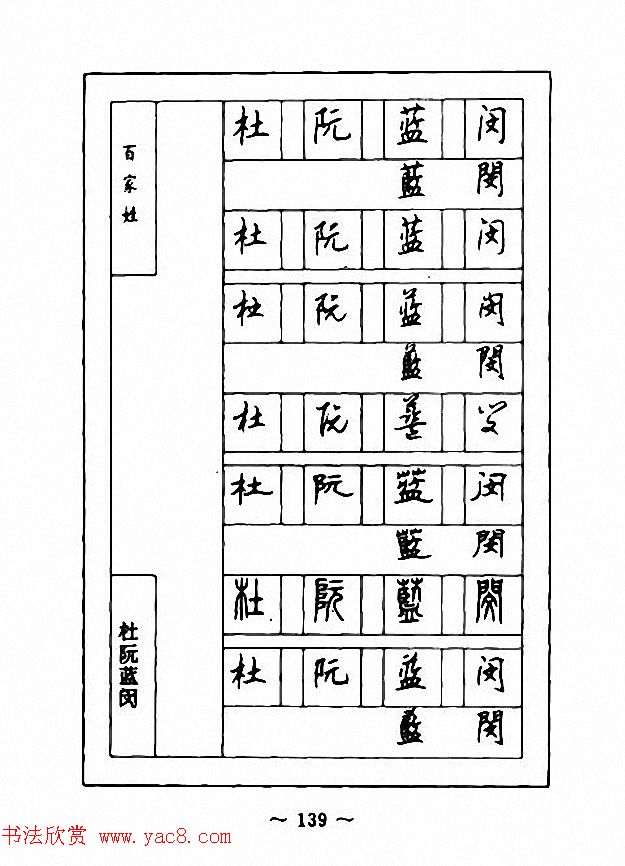 百家姓
杜阮蓝闵
杜 阮 蓝 闵
藍 閔
杜 阮 蓝 闵
杜 阮 蓝 闵
藍 閔
杜 阮 蓝 闵
杜 阮 蓝 闵
藍 閔
杜 阮 藍 閔
杜 阮 蓝 闵
藍 閔
～ 139 ～
书法欣赏 www.yac8.com